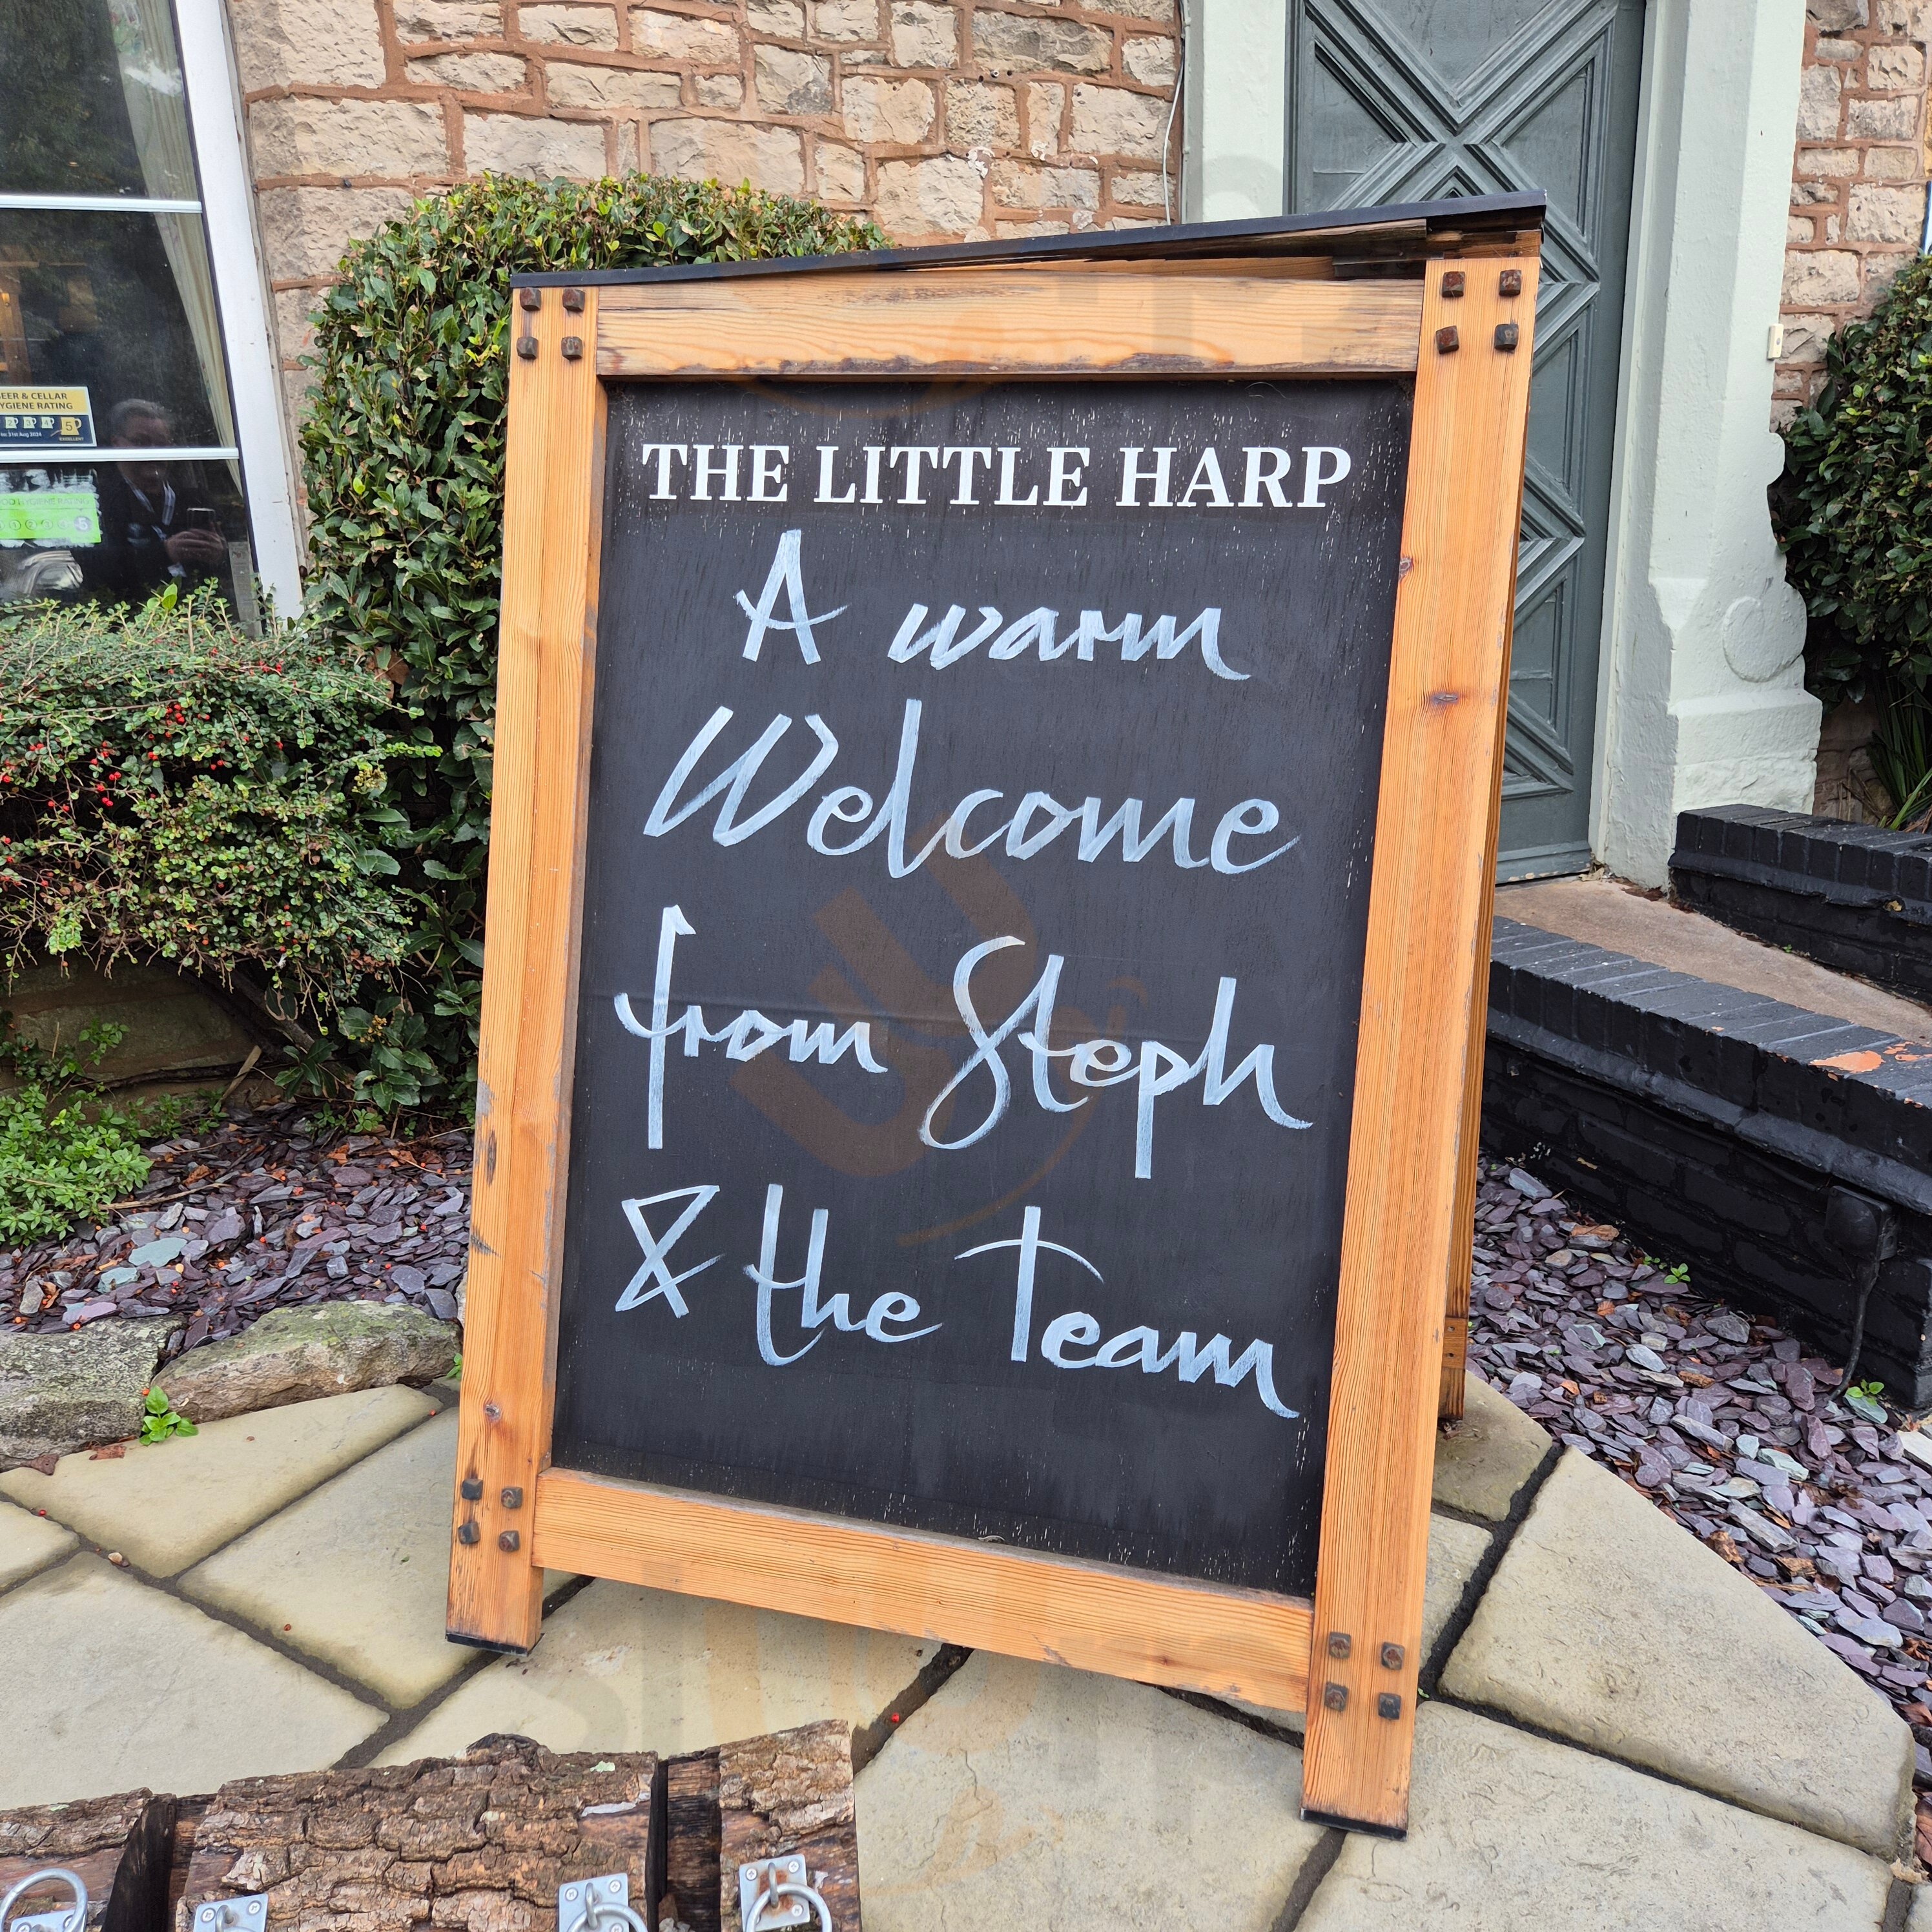 THE LITTLE HARP
A warm
Welcome
from Steph
& the Team
BEER & CELLAR
HYGIENE RATING
5
EXCELLENT